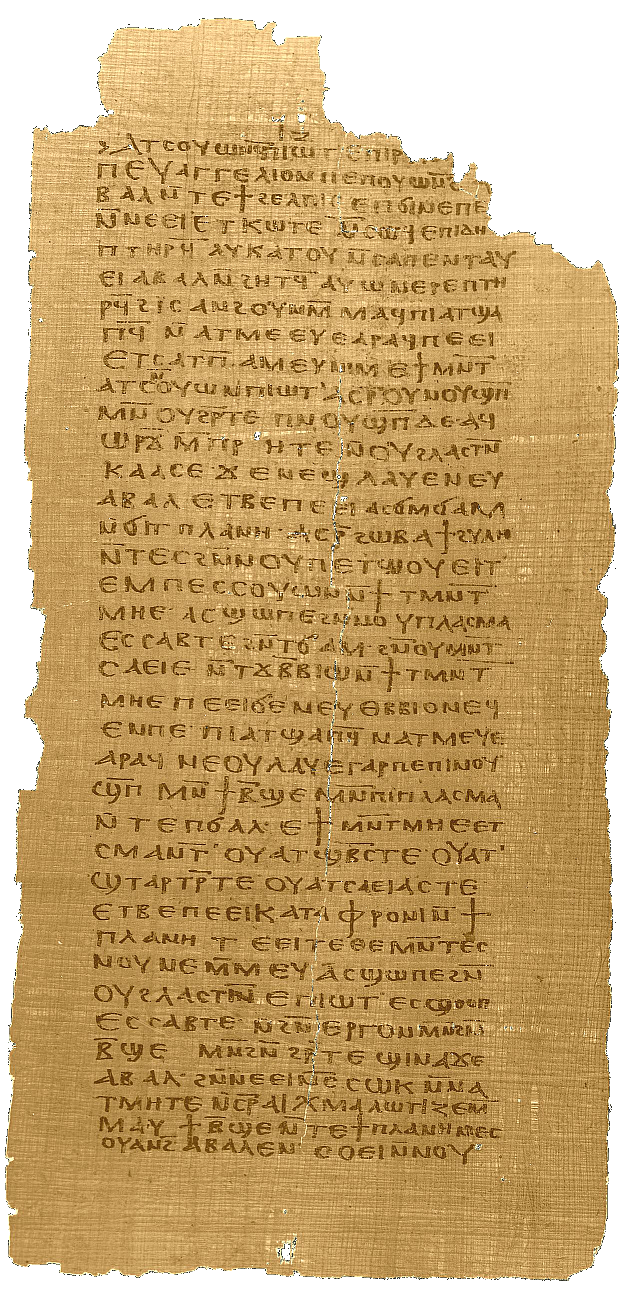 ⲡⲉⲩⲁⲅⲅⲉⲗⲓⲟⲛ ⲡⲉ ⲡⲟⲩⲱⲛϩ
ⲃⲁⲗ ⲛ̄ⲧⲉ ϯϩⲉⲗⲡⲓⲥ ⲉⲡϭⲓⲛⲉ ⲡⲉ
ⲛ̄ⲛⲉⲉⲓ ⲉⲧⲕⲱⲧⲉ ⲛ̄ⲥⲱϥ ⲉⲡⲓⲇⲏ
ⲡⲧⲏⲣϥ ⲁⲩⲕⲁⲧⲟⲩ ⲛ̄ⲥⲁ ⲡⲉⲛⲧⲁⲩ
ⲉⲓ ⲁⲃⲁⲗ ⲛ̄ϩⲏⲧϥ̄ ⲁⲩⲱ ⲛⲉⲣⲉⲡⲧⲏ
ⲣϥ̄ ϩⲓ ⲥⲁⲛϩⲟⲩⲛ ⲙ̄ⲙⲁϥ ⲡⲓⲁⲧϣⲁ
ⲡϥ̄ ⲛ̄ⲁⲧⲙⲉⲉⲩⲉ ⲁⲣⲁϥ ⲡⲉⲉⲓ
ⲉⲧⲥⲁⲧⲡ̄ ⲁⲙⲉⲩ ⲛⲓⲙ ⲉϯⲙⲛ̄ⲧ
ⲁⲧⲥⲟⲩⲱⲛ ⲡⲓⲱⲧ' ⲁⲥⲣ̄ ⲟⲩⲛⲟⲩϣⲡ̄
ⲙⲛ̄ ⲟⲩϩⲣ̄ⲧⲉ ⲡⲛⲟⲩϣⲡ̄ ⲇⲉ ⲁϥ
ⲱⲣϫ̄ ⲙ̄ⲡⲣⲏⲧⲉ ⲛ̄ⲟⲩϩⲗⲁⲥⲧⲛ̄
ⲕⲁⲁⲥⲉ ϫⲉ ⲛⲉϣ ⲗⲁⲩⲉ ⲛⲉⲩ
ⲁⲃⲁⲗ ⲉⲧⲃⲉ ⲡⲉⲉⲓ ⲁⲥϭⲙ̄ϭⲁⲙ
ⲛ̄ϭⲓ ϯⲡⲗⲁⲛⲏ ⲁⲥⲣ̄ϩⲱⲃ ⲁϯϩⲩⲗⲏ
ⲛ̄ⲧⲉⲥ ϩⲛ̄ⲛ ⲟⲩⲡⲉⲧϣⲟⲩⲉⲓⲧ'
ⲉⲙⲡⲉⲥⲥⲟⲩⲱⲛ ⲛ̄ϯⲧⲙⲛ̄ⲧ
ⲙⲏⲉ· ⲁⲥϣⲱⲡⲉ ϩⲛ̄ⲛⲟⲩⲡⲗⲁⲥⲙⲁ
ⲉⲥⲥⲁⲃⲧⲉ ϩⲛ̄ ⲧϭⲁⲙ ϩⲛ̄ ⲟⲩⲙⲛ̄ⲧ
ⲥⲁⲉⲓⲉ ⲛ̄ⲧϫⲃ̄ⲃⲓⲱ ⲛ̄ϯⲧⲙⲛ̄ⲧ
ⲙⲏⲉ ⲡⲉⲉⲓ ϭⲉ ⲛⲉⲩⲑⲃ̄ⲃⲓⲟ ⲛⲉϥ
ⲉⲛ ⲡⲉ ⲡⲓⲁⲧϣⲁⲡϥ̄ ⲛ̄ⲁⲧⲙⲉⲩⲉ
ⲁⲣⲁϥ ⲛⲉⲟⲩⲗⲁⲩⲉ ⲅⲁⲣ ⲡⲉ ⲡⲓⲛⲟⲩ
ϣⲡ̄ ⲙⲛ̄ ϯⲃ̄ϣⲉ ⲙⲛ̄ ⲡⲓⲡⲗⲁⲥⲙⲁ
ⲛ̄ⲧⲉ ⲡϭⲁⲗ· ⲉϯⲙⲛ̄ⲧⲙⲏⲉ ⲉⲧ
ⲥⲙⲁⲛⲧ' ⲟⲩⲁⲧϣⲃ̄ⲧⲥ̄ ⲧⲉ ⲟⲩⲁⲧ'
ϣⲧⲁⲣⲧⲣ̄ ⲧⲉ ⲟⲩⲁⲧⲥⲁⲉⲓⲁⲥ ⲧⲉ
ⲉⲧⲃⲉ ⲡⲉⲉⲓ ⲕⲁⲧⲁⲫⲣⲟⲛⲓ ⲛ̄ϯ
ⲡⲗⲁⲛⲏ ⲧⲉⲉⲓ ⲧⲉ ⲑⲉ ⲙⲛ̄ⲧⲉⲥ
ⲛⲟⲩⲛⲉ ⲙ̄ⲙⲉⲩ ⲁⲥϣⲱⲡⲉ ϩⲛ̄
ⲟⲩϩⲗⲁⲥⲧⲛ̄ ⲉⲡⲓⲱⲧ' ⲉⲥϣⲟⲟⲡ
ⲉⲥⲥⲁⲃⲧⲉ ⲛ̄ϩⲛ̄ⲉⲣⲅⲟⲛ ⲙⲛ̄ ϩⲛ̄
ⲃ̄ϣⲉ ⲙⲛ̄ ϩⲛ̄ϩⲣ̄ⲧⲉ ϣⲓⲛⲁ ϫⲉ
ⲁⲃⲁⲗ ϩⲛ̄ ⲛⲉⲉⲓ ⲛ̄ⲥⲥⲱⲕ ⲛ̄ⲛⲁ
ⲧⲙⲏⲧⲉ ⲛ̄ⲥⲣ̄ⲁⲓⲭⲙⲁⲗⲱⲧⲓⲍⲉ ⲙ̄
ⲙⲁⲩ ϯⲃ̄ϣⲉ ⲛ̄ⲧⲉ ϯⲡⲗⲁⲛⲏ ⲛⲉⲥ
ⲟⲩⲁⲛϩ ⲁⲃⲁⲗ ⲉⲛ ⲥⲟⲉⲓ ⲛ̄ⲛⲟⲩ